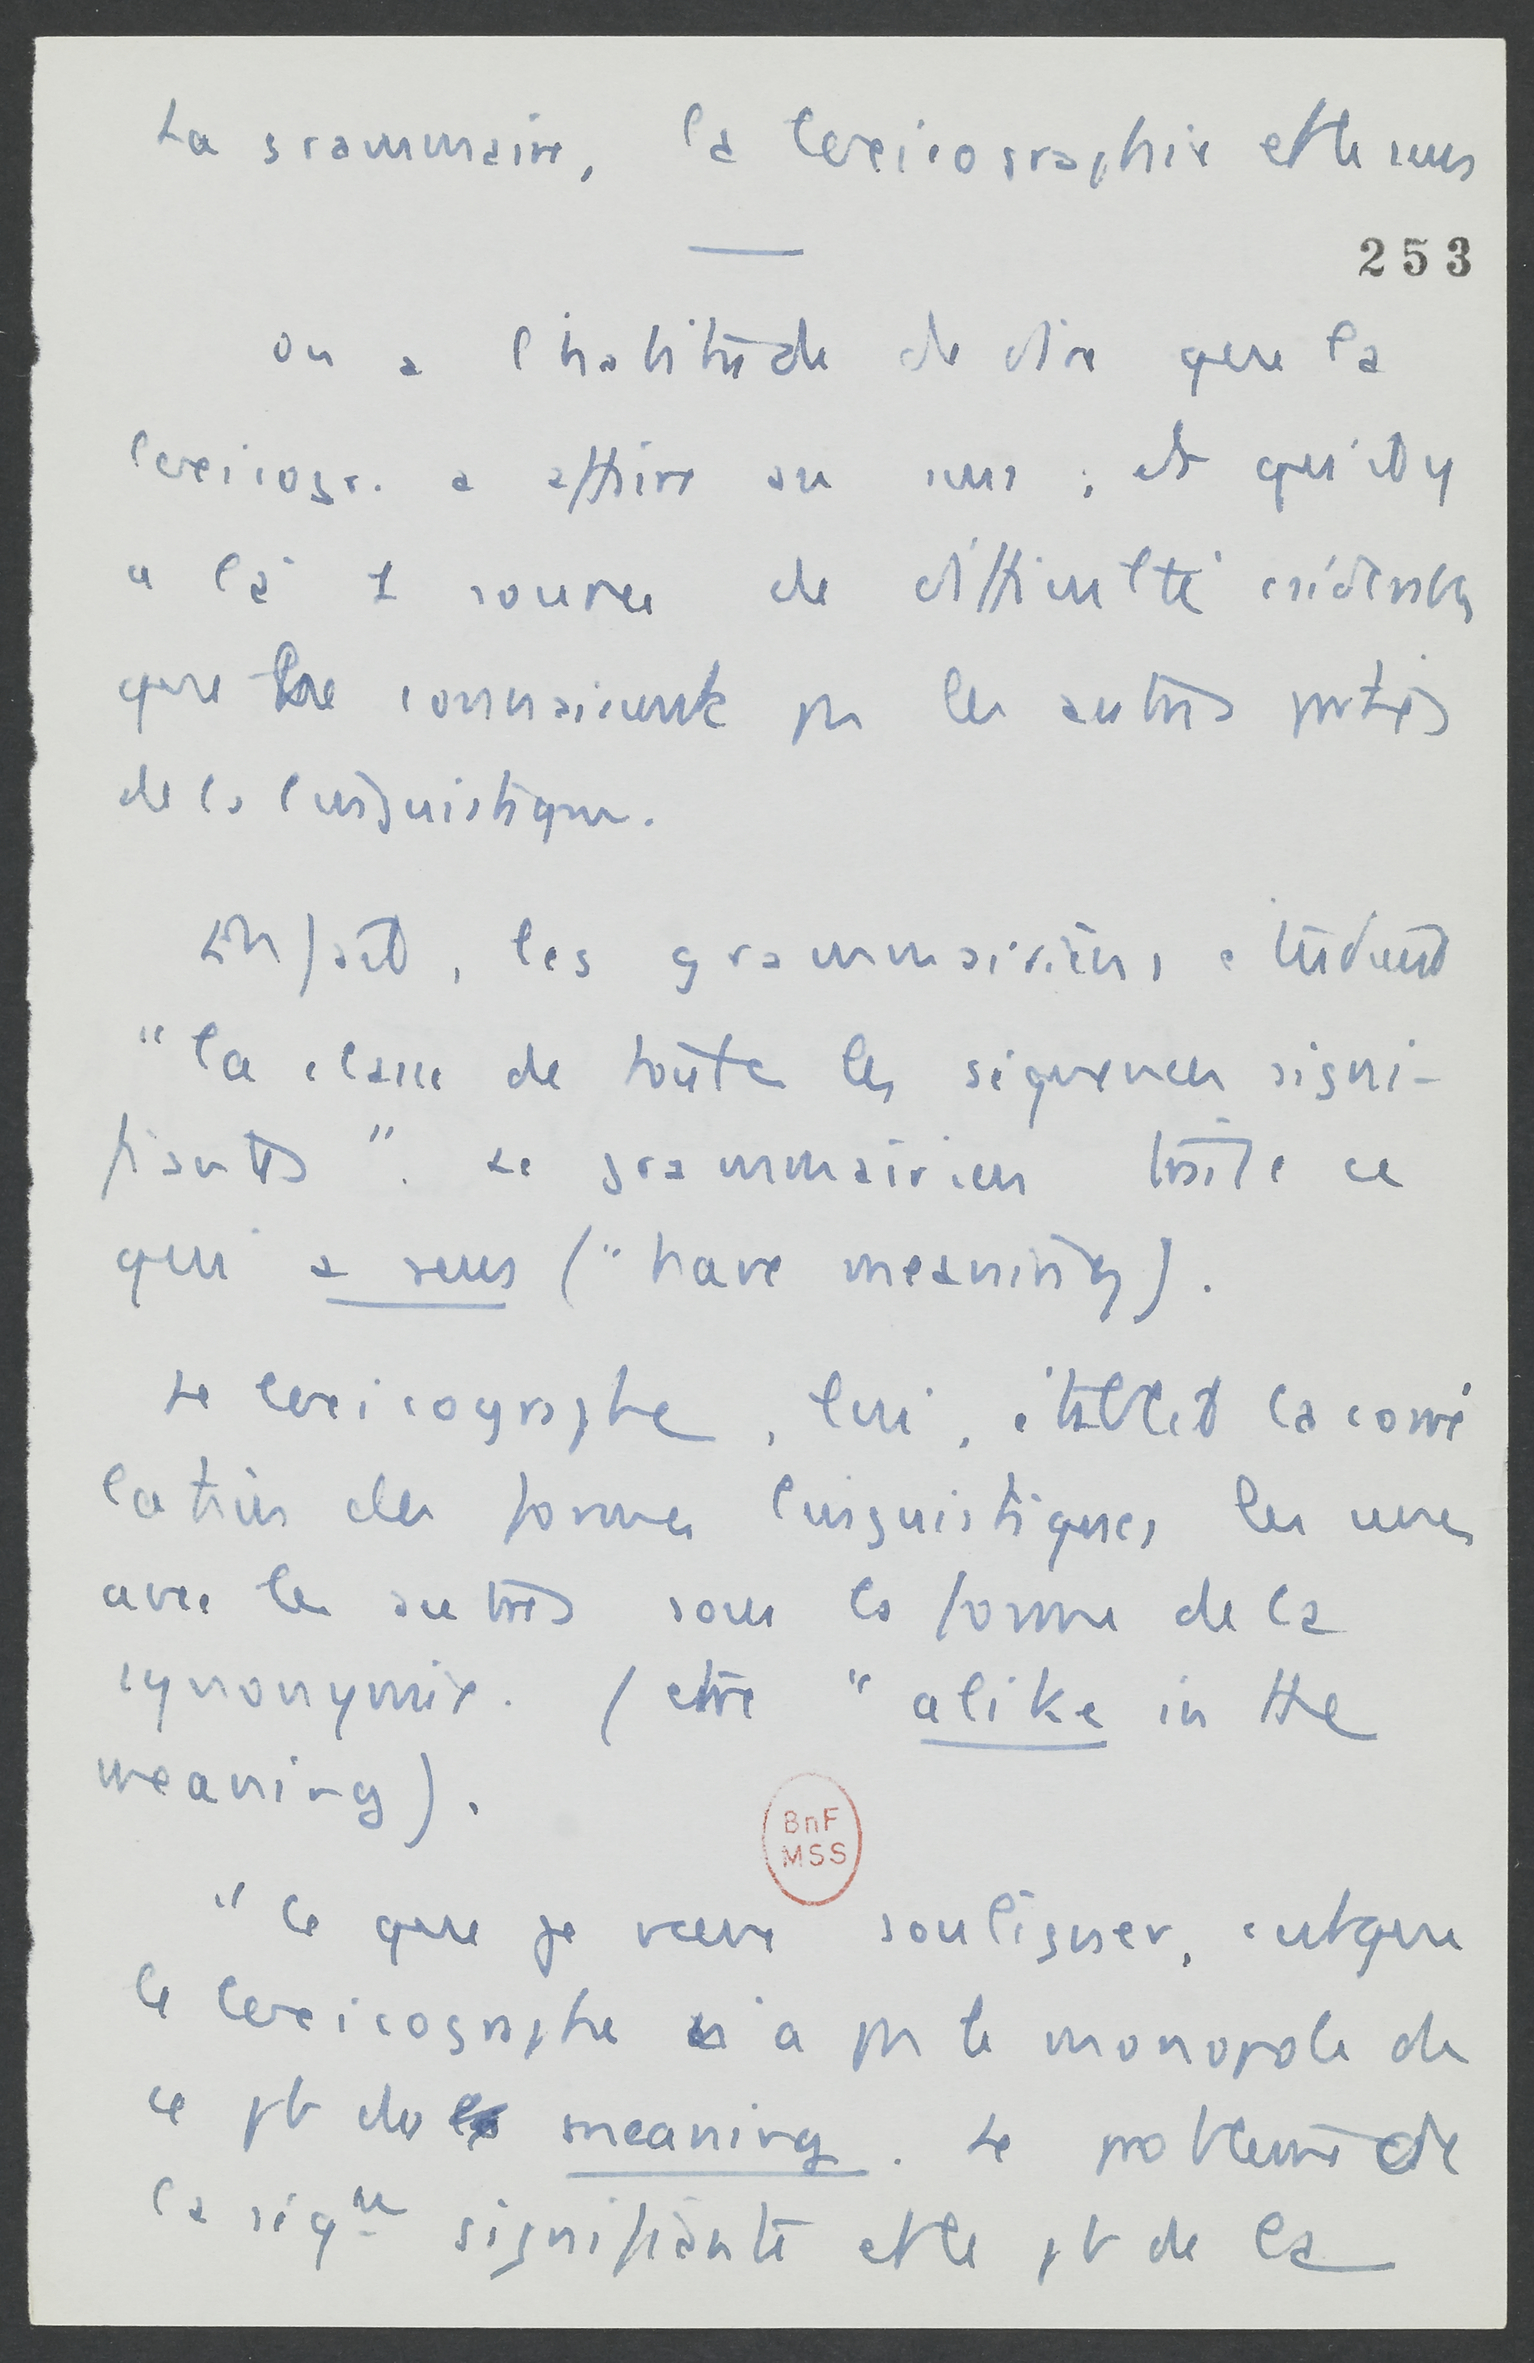 La grammaire, la lexicographie et le sens
253
On a l'habitude de dire que la
lexicogr. a affaire au sens ; et qu'il y
a là 1 source de difficulté évidentes
que ne connaissent pas les autres parties
de la linguistique.
En fait, les grammairiens étudient
"la classe de toutes les séquences signi-
fiantes". Le grammairien traite ce
qui a sens ("have meaning).
Le lexicographe, lui, établit la corré
lation des formes linguistiques les unes
avec les autres sous la forme de la
synonymie. (être "alike in the
meaning).
BnF
MSS
"Ce que je veux souligner, c'est que
le lexicographe n'a pas le monopole de
ce pb du meaning. Le problème de
la séqce signifiante et le pb de la